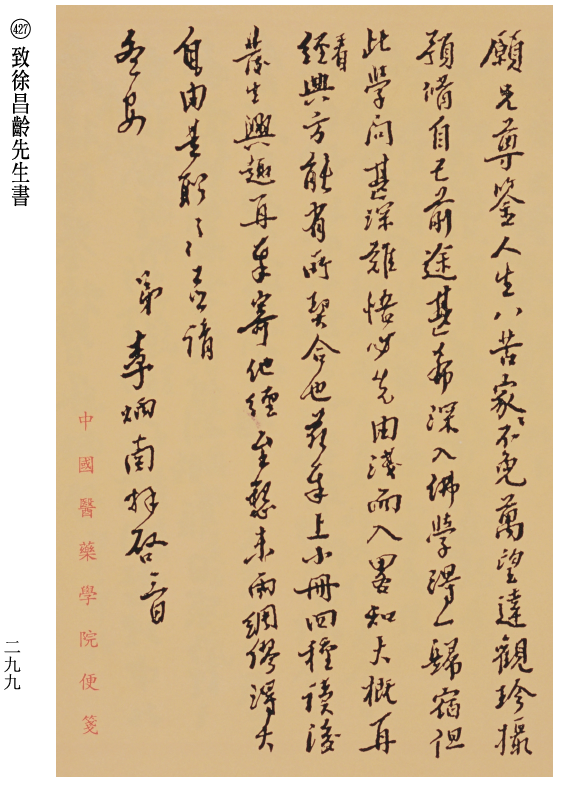 427 致徐昌齡先生書
願兄尊鑒人生八苦家〻不免萬望達觀珍攝
預備自己前途甚希深入佛學得一歸宿但
此學問甚深難悟必先由淺而入畧知大概再
看經典方能有所契合也茲奉上小冊四種讀後
發生興趣再奉寄他經至懇未雨綢繆得大
自由是盼〻請
安
弟李炳南拜啓日
中國醫藥學院便箋
二九九